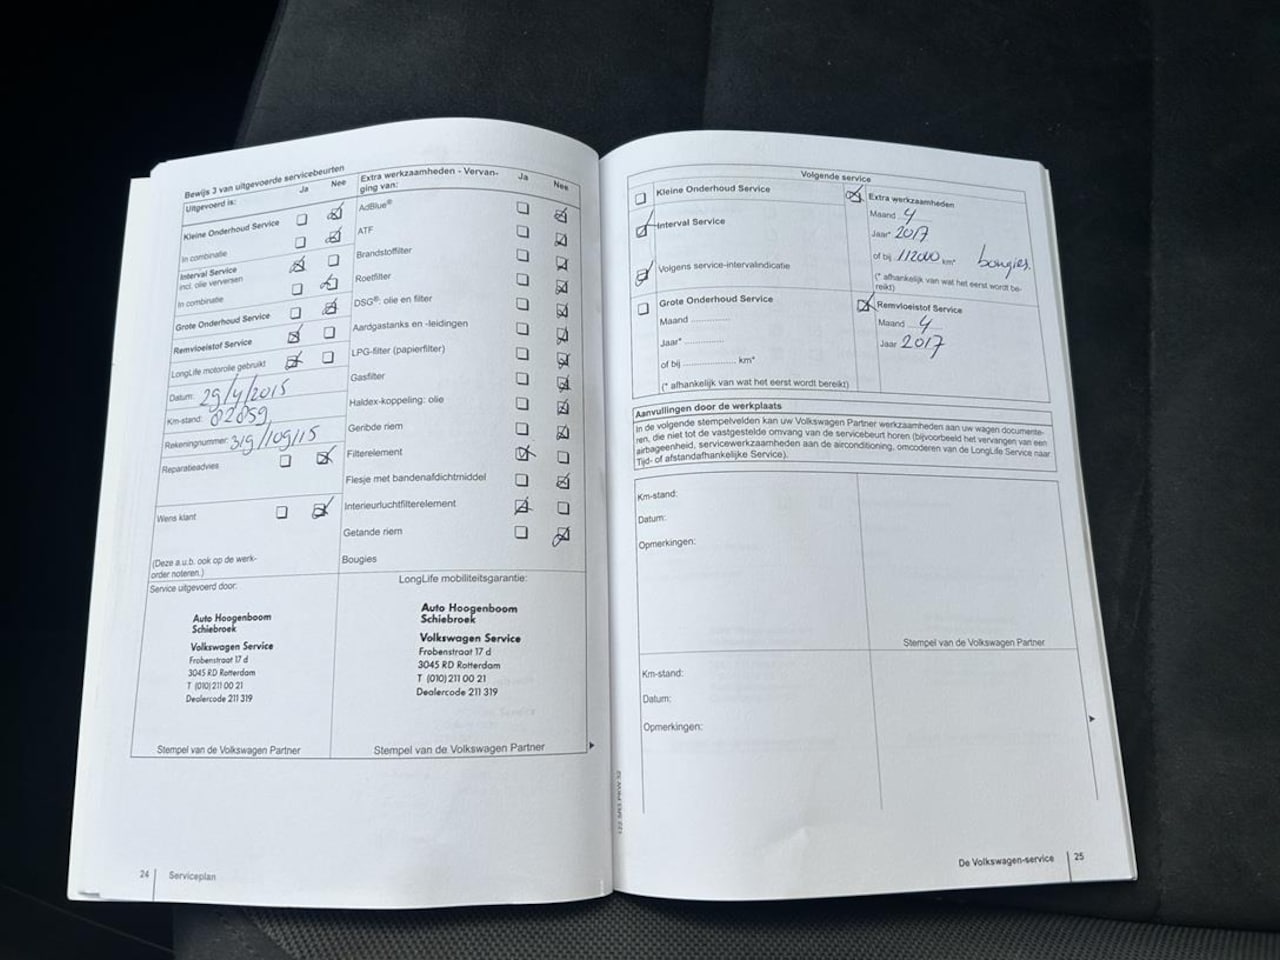 Bewijs 3 van uitgevoerde servicebeurten
Uitgevoerd is:
Ja
Nee
Kleine Onderhoud Service
In combinatie
Interval Service
incl. olie verversen
In combinatie
Grote Onderhoud Service
Remvloeistof Service
LongLife motorolie gebruikt
Datum: 29/4/2015
Km-stand: 82859
Rekeningnummer: 319/109/15
Reparatieadvies
Wens klant
(Deze a.u.b. ook op de werk-
order noteren.)
Service uitgevoerd door:
Auto Hoogenboom
Schiebroek
Volkswagen Service
Frobenstraat 17 d
3045 RD Rotterdam
T (010) 211 00 21
Dealercode 211 319
Stempel van de Volkswagen Partner
Extra werkzaamheden - Vervan-
ging van:
Ja
Nee
AdBlue®
ATF
Brandstoffilter
Roetfilter
DSG®: olie en filter
Aardgastanks en -leidingen
LPG-filter (papierfilter)
Gasfilter
Haldex-koppeling: olie
Geribde riem
Filterelement
Flesje met bandenafdichtmiddel
Interieurluchtfilterelement
Getande riem
Bougies
LongLife mobiliteitsgarantie:
Auto Hoogenboom
Schiebroek
Volkswagen Service
Frobenstraat 17 d
3045 RD Rotterdam
T (010) 211 00 21
Dealercode 211 319
Stempel van de Volkswagen Partner
24
Serviceplan
Volgende service
Kleine Onderhoud Service
Interval Service
Volgens service-intervalindicatie
Grote Onderhoud Service
Maand ..............
Jaar* ..............
of bij .................. km*
(* afhankelijk van wat het eerst wordt bereikt)
Extra werkzaamheden
Maand 4
Jaar* 2017
of bij 112000 km* bougies.
(* afhankelijk van wat het eerst wordt be-
reikt)
Remvloeistof Service
Maand 4
Jaar 2017
Aanvullingen door de werkplaats
In de volgende stempelvelden kan uw Volkswagen Partner werkzaamheden aan uw wagen documente-
ren, die niet tot de vastgestelde omvang van de servicebeurt horen (bijvoorbeeld het vervangen van een
airbageenheid, servicewerkzaamheden aan de airconditioning, omcoderen van de LongLife Service naar
Tijd- of afstandafhankelijke Service).
Km-stand:
Datum:
Opmerkingen:
Stempel van de Volkswagen Partner
Km-stand:
Datum:
Opmerkingen:
De Volkswagen-service
25